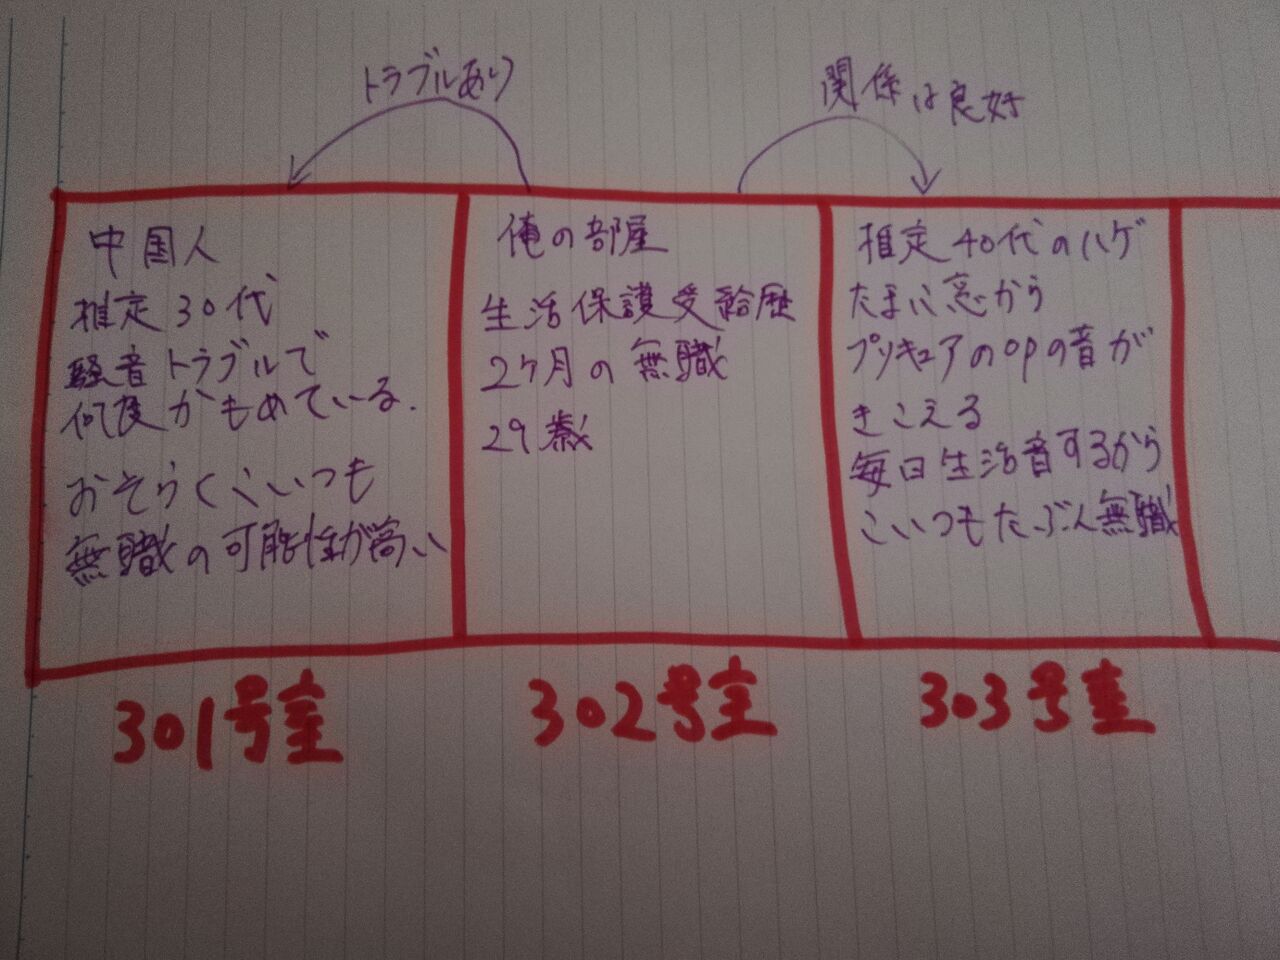 トラブルあり
関係は良好
中国人
推定30代
騒音トラブルで
何度かもめている.
おそらくこいつも
無職の可能性が高い
俺の部屋
生活保護受給歴
2ヶ月の無職
29歳
推定40代のハゲ
たまに窓から
プリキュアのOPの音が
きこえる
毎日生活音するから
こいつもたぶん無職
301号室
302号室
303号室